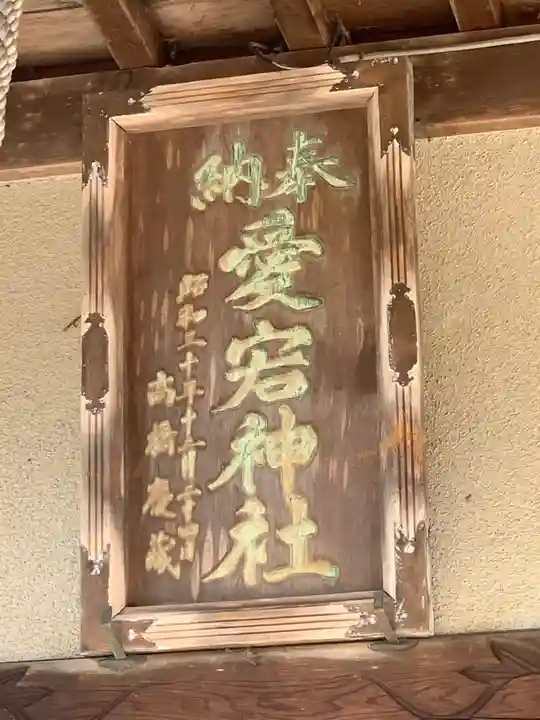 奉納
愛宕神社
昭和三十年十二月二十四日
高橋慶蔵